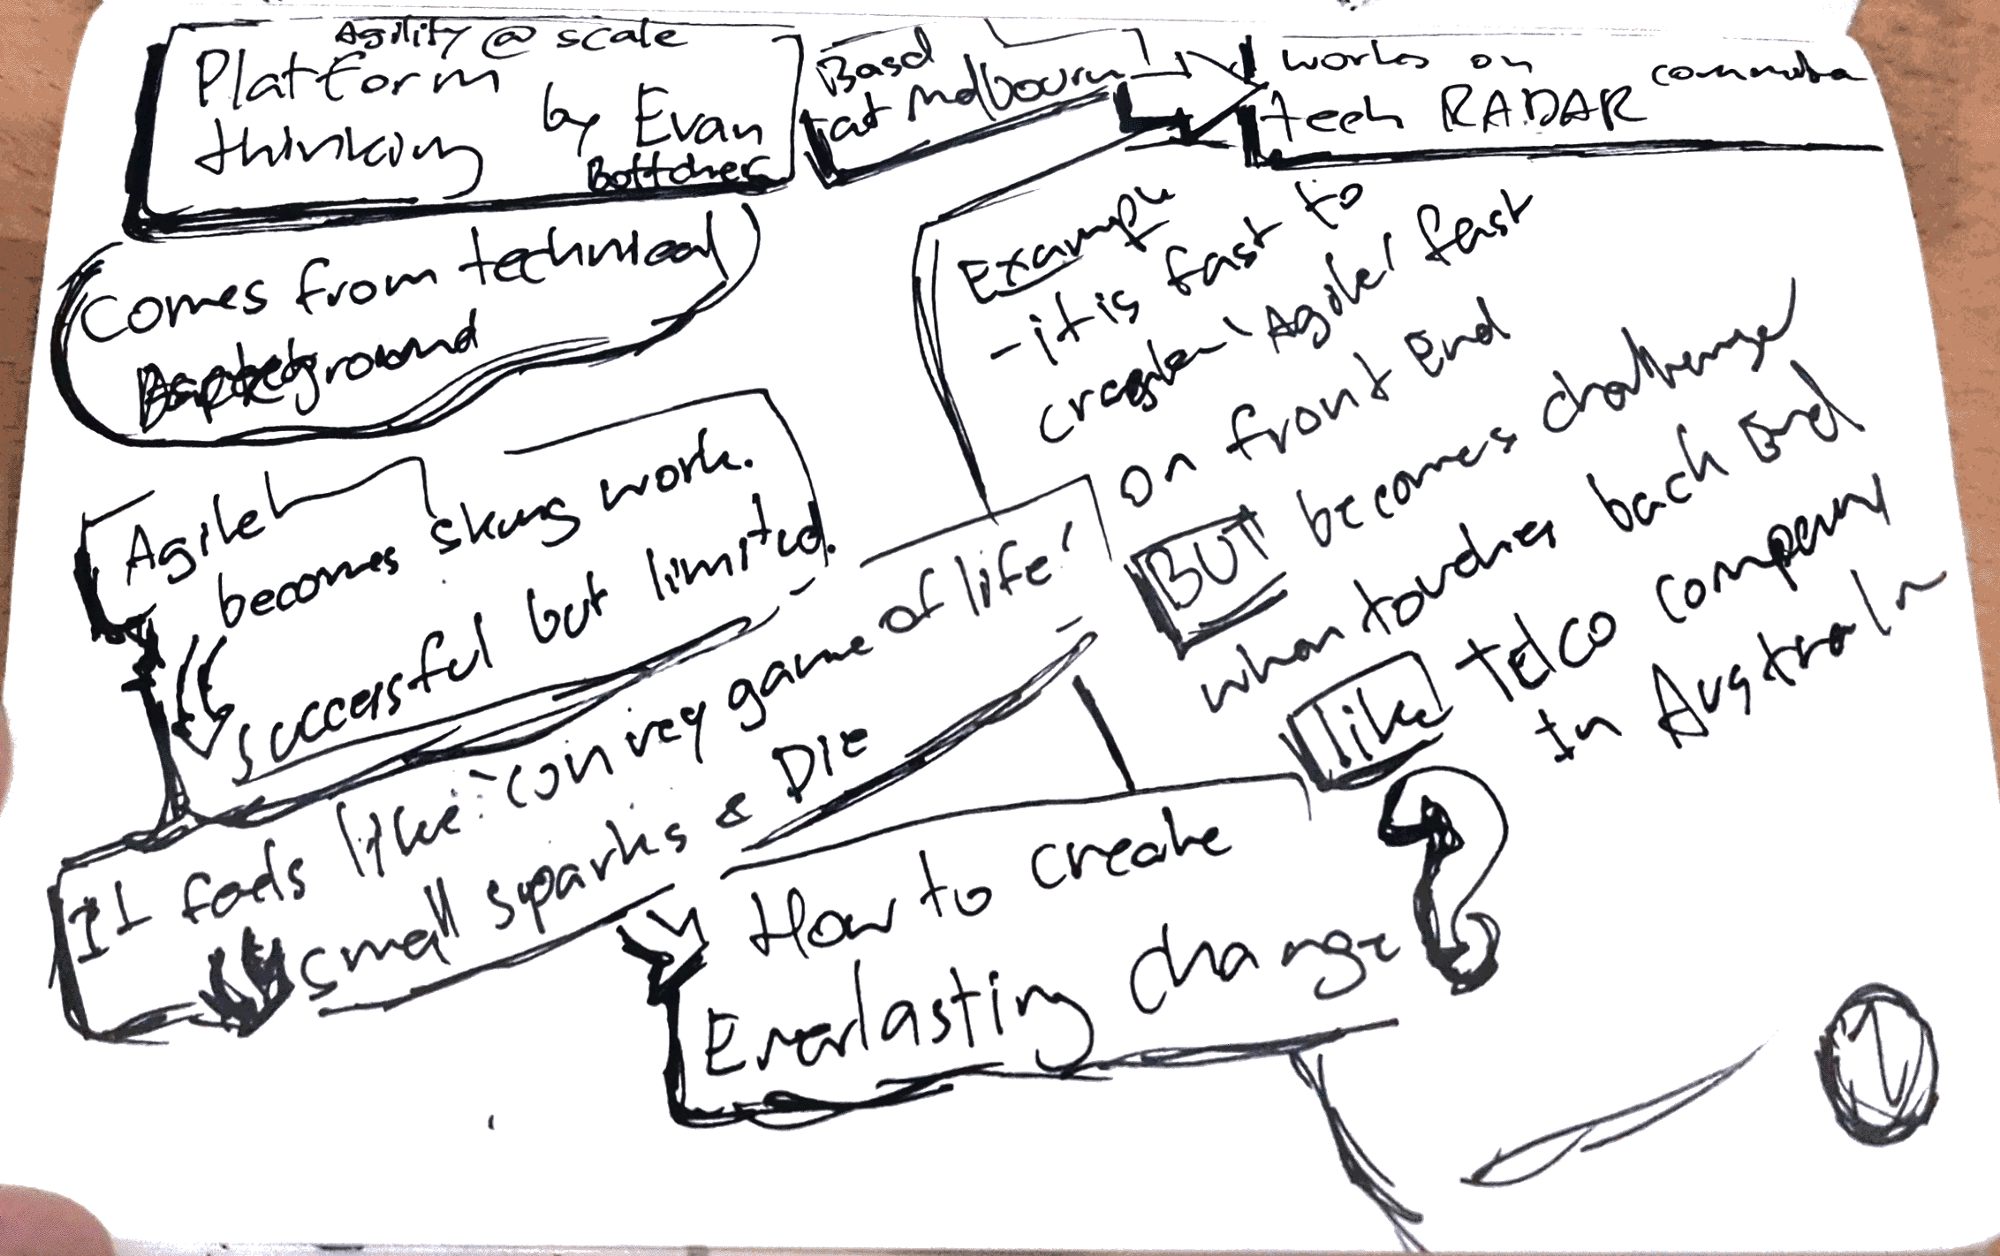 Agility @ scale
Platform
thinking
by Evan
Bottcher
Basd
at Melbourn
works on
tech RADAR
Comes from technical
Background
Agile
becomes skung work.
successful but limited.
It feels like 'convey game of life'
small sparks & DIE
How to create
Everlasting change?
Example
- it is fast to
'Agile' fast
on front End
BUT becomes challenge
when touches back End
like Telco company
in Australia
1